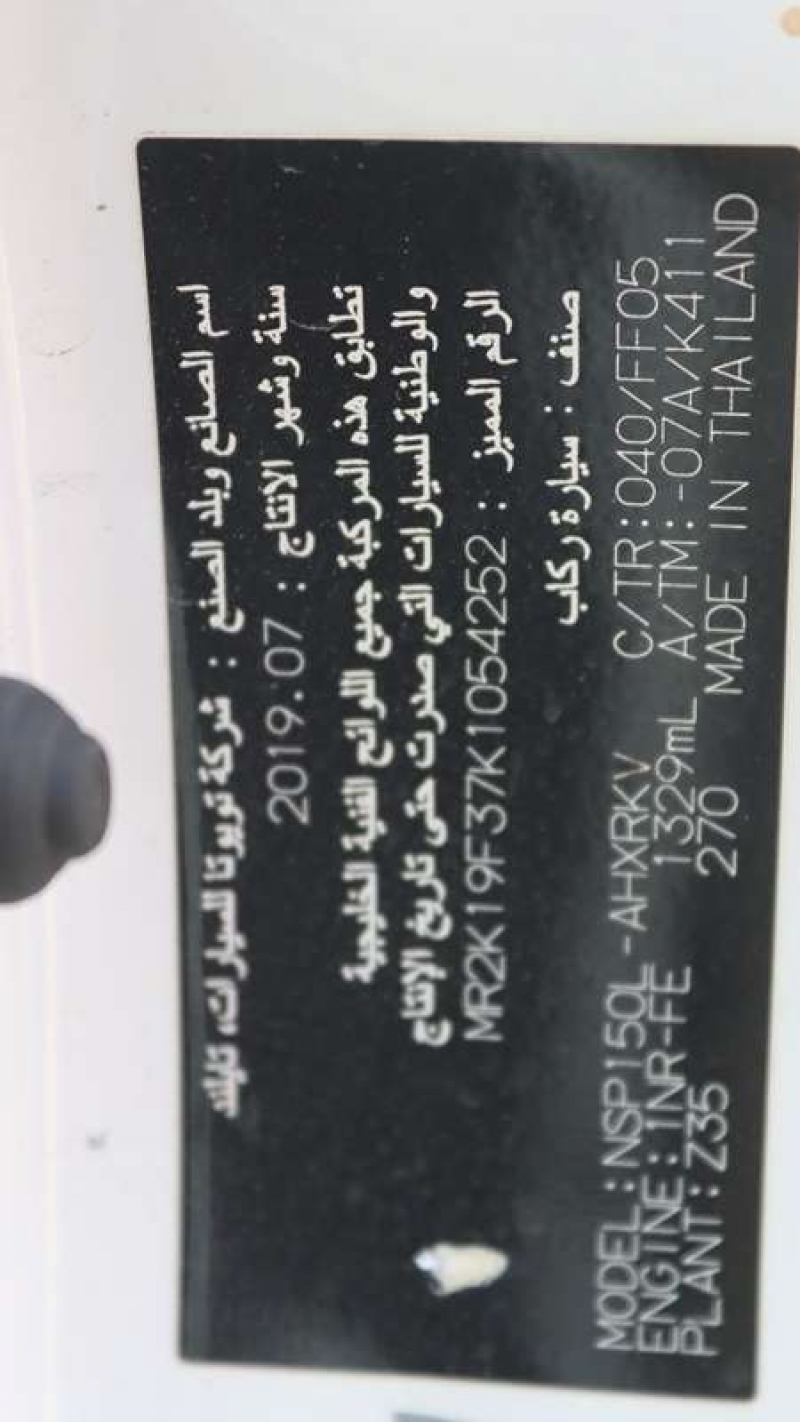 اسم الصانع وبلد الصنع : شركة تويوتا للسيارات، تايلاند
سنة وشهر الانتاج : 2019.07
تطابق هذه المركبة جميع اللوائح الفنية الخليجية
والوطنية للسيارات التي صدرت حتى تاريخ الإنتاج
الرقم المميز : MR2K19F37K1054252
صنف : سيارة ركاب
MODEL:NSP150L-AHXRKV C/TR:040/FF05
ENGINE:1NR-FE 1329mL A/TM:-07A/K411
PLANT:Z35 270 MADE IN THAILAND